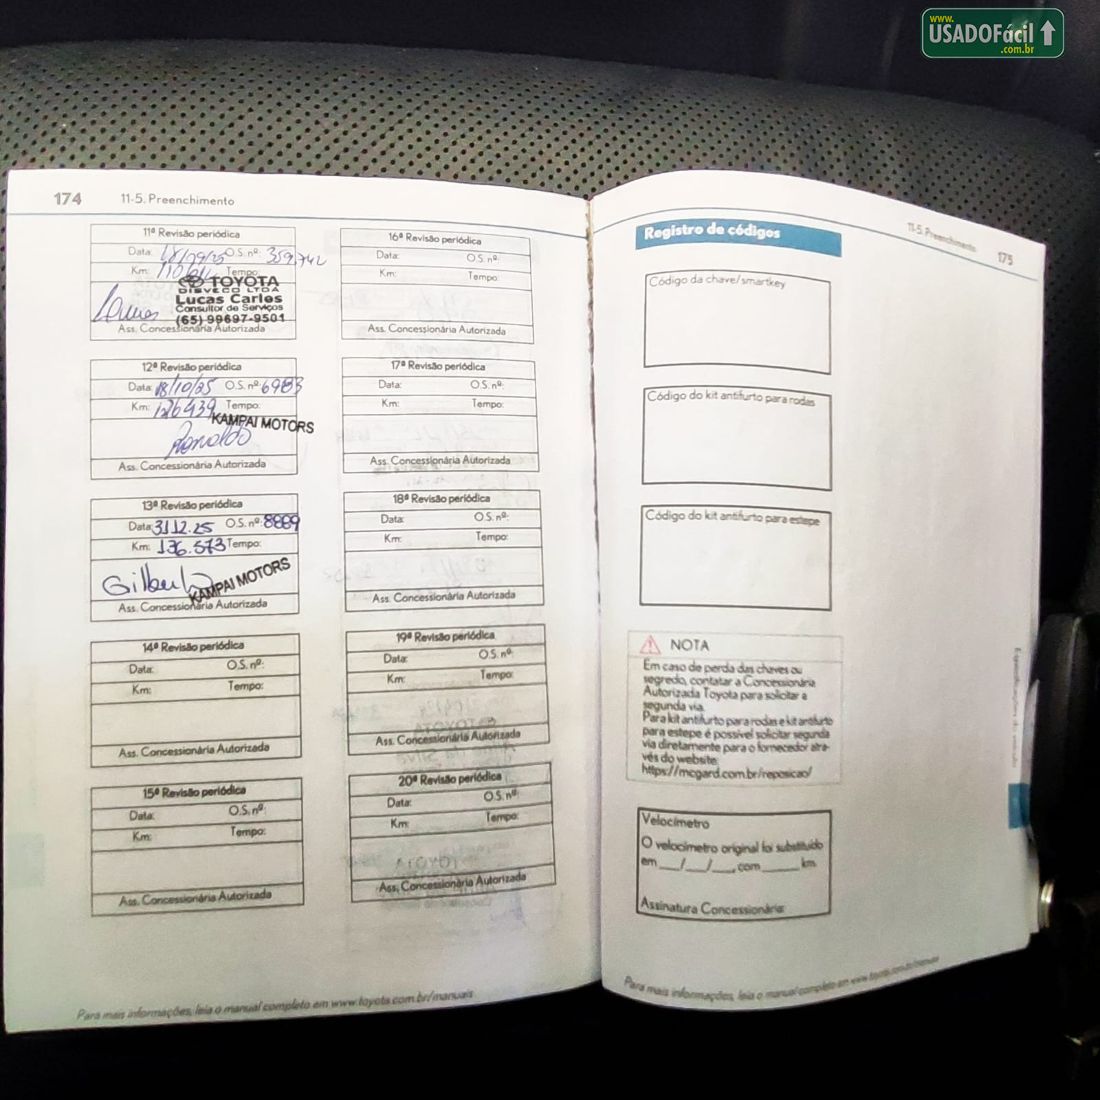 www.
USADOFácil
.com.br
174
11-5. Preenchimento
11ª Revisão periódica
Data: O.S. nº: 359.742
Km: Tempo:
TOYOTA
DISVECO LTDA
Lucas Carlos
Consultor de Serviços
(65) 99697-9501
Ass. Concessionária Autorizada
12ª Revisão periódica
Data: 18/10/25 O.S. nº: 6983
Km: 126439 Tempo:
KAMPAI MOTORS
Ronaldo
Ass. Concessionária Autorizada
13ª Revisão periódica
Data: 31.12.25 O.S. nº: 8889
Km: 136.573 Tempo:
KAMPAI MOTORS
Ass. Concessionária Autorizada
14ª Revisão periódica
Data: O.S. nº:
Km: Tempo:
Ass. Concessionária Autorizada
15ª Revisão periódica
Data: O.S. nº:
Km: Tempo:
Ass. Concessionária Autorizada
16ª Revisão periódica
Data: O.S. nº:
Km: Tempo:
Ass. Concessionária Autorizada
17ª Revisão periódica
Data: O.S. nº:
Km: Tempo:
Ass. Concessionária Autorizada
18ª Revisão periódica
Data: O.S. nº:
Km: Tempo:
Ass. Concessionária Autorizada
19ª Revisão periódica
Data: O.S. nº:
Km: Tempo:
Ass. Concessionária Autorizada
20ª Revisão periódica
Data: O.S. nº:
Km: Tempo:
Ass. Concessionária Autorizada
Para mais informações, leia o manual completo em www.toyota.com.br/manuais
11-5. Preenchimento
175
Registro de códigos
Código da chave/smartkey
Código do kit antifurto para rodas
Código do kit antifurto para estepe
NOTA
Em caso de perda das chaves ou
segredo, contatar a Concessionária
Autorizada Toyota para solicitar a
segunda via.
Para kit antifurto para rodas e kit antifurto
para estepe é possível solicitar segunda
via diretamente para o fornecedor atra-
vés do website:
https://mcgard.com.br/reposicao/
Velocímetro
O velocímetro original foi substituído
em ___/___/___, com ______ km
Assinatura Concessionária:
Especificações do veículo
Para mais informações, leia o manual completo em www.toyota.com.br/manuais